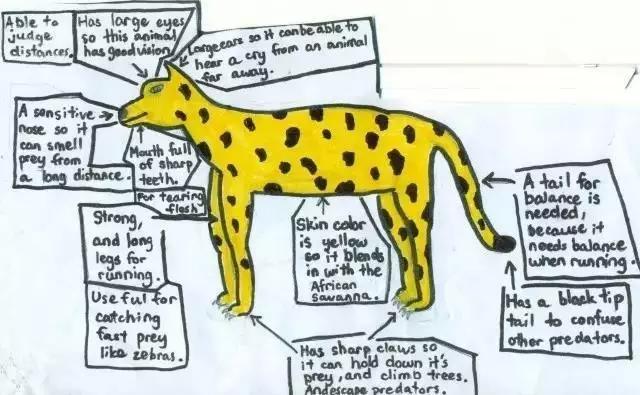 Able to
judge
distances.
Has large eyes
so this animal
has good vision
Large ears so it can be able to
hear a cry from an animal
far away.
A sensitive
nose so it
can smell
prey from
a long distance.
Mouth full
of sharp
teeth.
For tearing
flesh
Strong,
and long
legs for
running.
Useful for
catching
fast prey
like zebras.
Skin color
is yellow
so it blends
in with the
African
savanna.
Has sharp claws so
it can hold down it's
prey, and climb trees.
And escape predators.
A tail for
balance is
needed,
because it
needs balance
when running.
Has a black tip
tail to confuse
other predators.